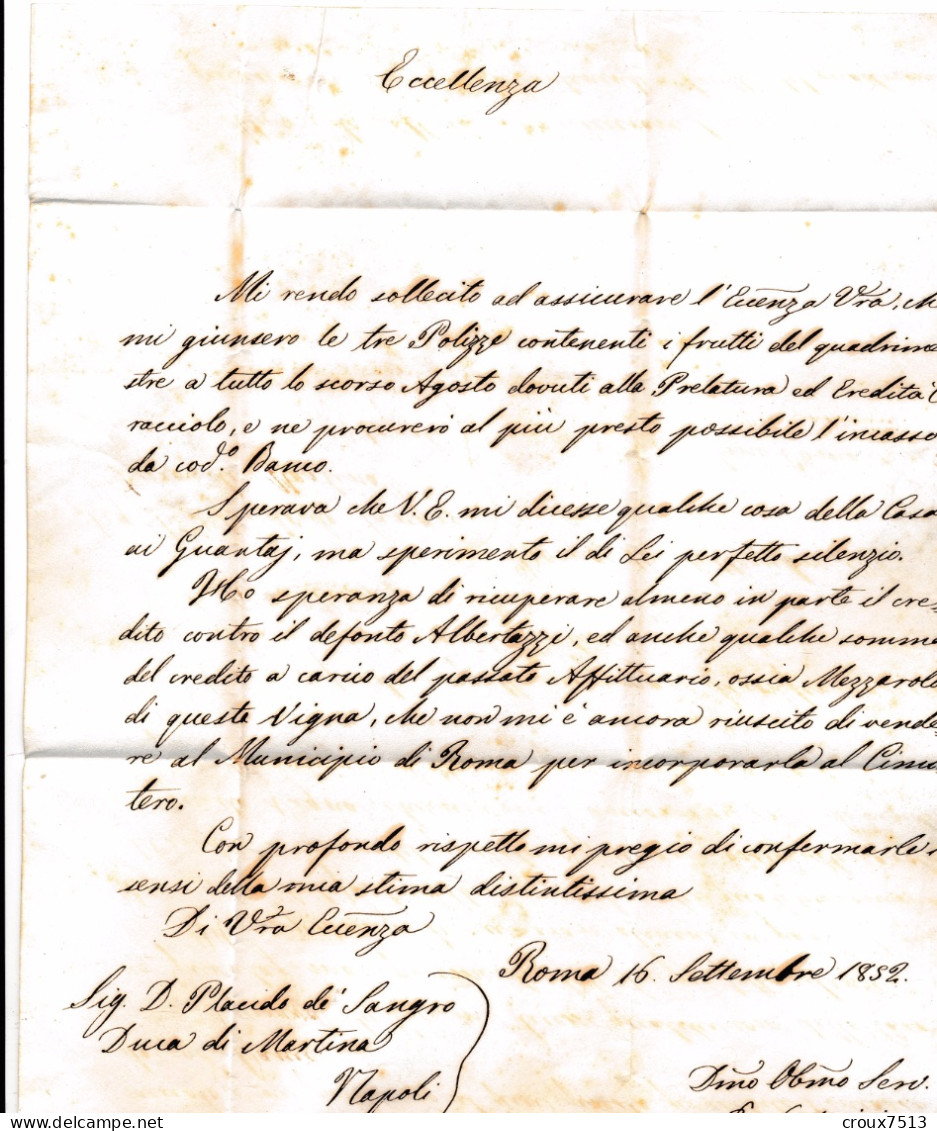 Eccellenza
Mi rendo sollecito ad assicurare l'Eccenza Vra, che
mi giunsero le tre Polizze contenenti i frutti del quadrime
stre a tutto lo scorso Agosto dovuti alla Prelatura ed Eredità C
racciolo, e ne procurerò al più presto possibile l'incasso
da cod.o Banco.
Sperava che V. E. mi dicesse qualche cosa della Casa
ai Guantaj, ma sperimento il di Lei perfetto silenzio.
Ho speranza di ricuperare almeno in parte il cre-
dito contro il defonto Albertazzi, ed anche qualche somma
del credito a carico del passato Affittuario, ossia Mezzarolo
di questa Vigna, che non mi è ancora riuscito di vende-
re al Municipio di Roma per incorporarla al Cimi
tero.
Con profondo rispetto mi pregio di confermarle i
sensi della mia stima distintissima
Di Vra Eccenza
Roma 16. Settembre 1852.
Sig. D. Placido de' Sangro
Duca di Martina
Napoli
Dmo Obmo Serv.
croux7513